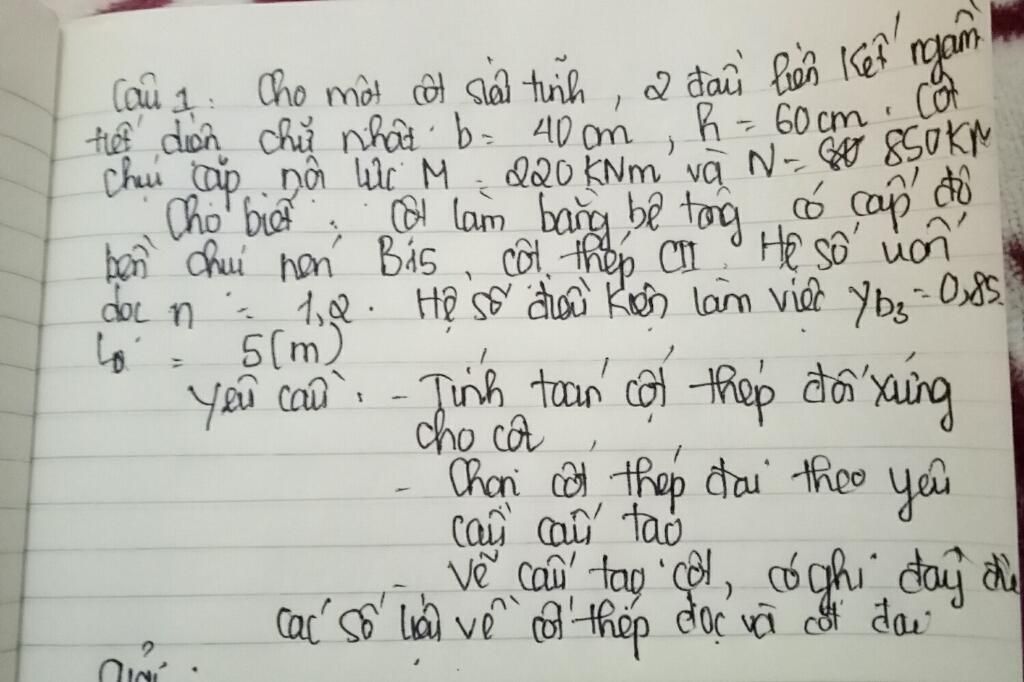 Câu 1: Cho một cột siêu tĩnh, 2 đầu liên kết ngàm
tiết diện chữ nhật b = 40cm, h = 60cm. Cột
chịu cặp nội lực M = 220KNm và N = 850KN
Cho biết: Cột làm bằng bê tông có cấp độ
bền chịu nén B15, cốt thép CII. Hệ số uốn
dọc η = 1,2. Hệ số điều kiện làm việc γb3 = 0,85
l0 = 5(m)
Yêu cầu: - Tính toán cốt thép đối xứng
cho cột
- Chọn cốt thép đai theo yêu
cầu cấu tạo
- Vẽ cấu tạo cột, có ghi đầy đủ
các số liệu về cốt thép dọc và cốt đai
Giải: